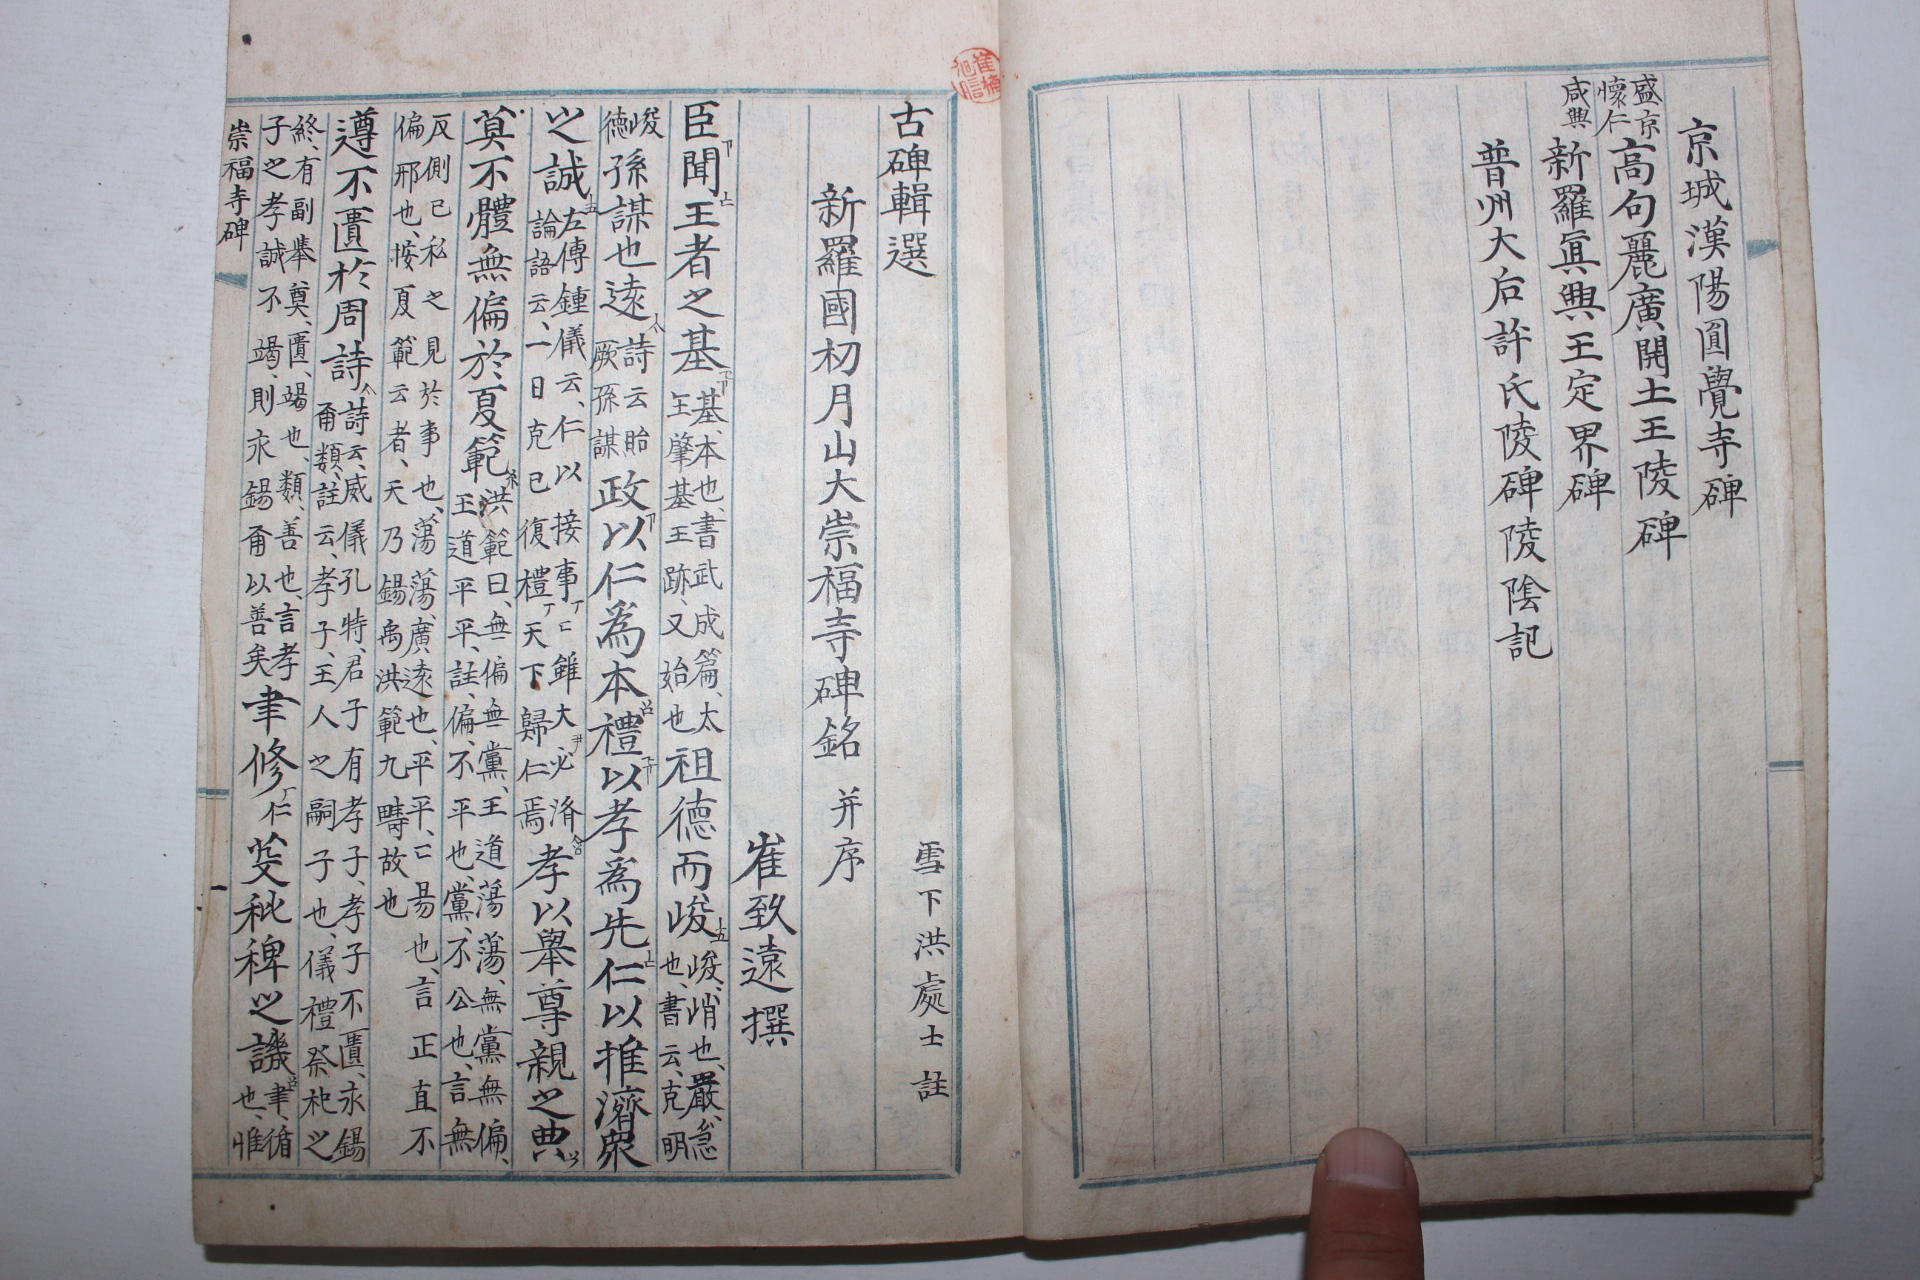 京城漢陽圓覺寺碑
盛京懷仁高句麗廣開土王陵碑
咸興新羅眞興王定界碑
普州大后許氏陵碑陵陰記
古碑輯選 雪下洪處士註
新羅國初月山大崇福寺碑銘 并序
崔致遠撰
臣聞王者之基基、本也、書武成篇、太王肇基王跡、又始也祖德而峻峻、峭也、嚴、急也、書云、克明
峻德孫謀也遠詩云貽厥孫謀政以仁爲本禮以孝爲先仁以推濟衆
之誠左傳鍾儀云、仁以接事雖大必済論語云、一日克己復禮天下歸仁焉孝以舉尊親之典
莫不體無偏於夏範洪範曰、無偏無黨、王道蕩蕩、無黨無偏、王道平平、註、偏、不平也、黨、不公也、言無
反側己私之見於事也、蕩蕩、廣遠也、平平、易也、言正直不偏邪也、按夏範云者、天乃錫禹洪範九疇故也
遵不匱於周詩詩云、威儀孔特、君子有孝子、孝子不匱、永錫甬類、註云、孝子、王人之嗣子也、儀禮祭祀之
終、有副奉奠、匱、竭也、類、善也、言孝子之孝誠不竭、則永錫甬以善矣聿修芟秕稗之譏聿、循也、惟
崇福寺碑